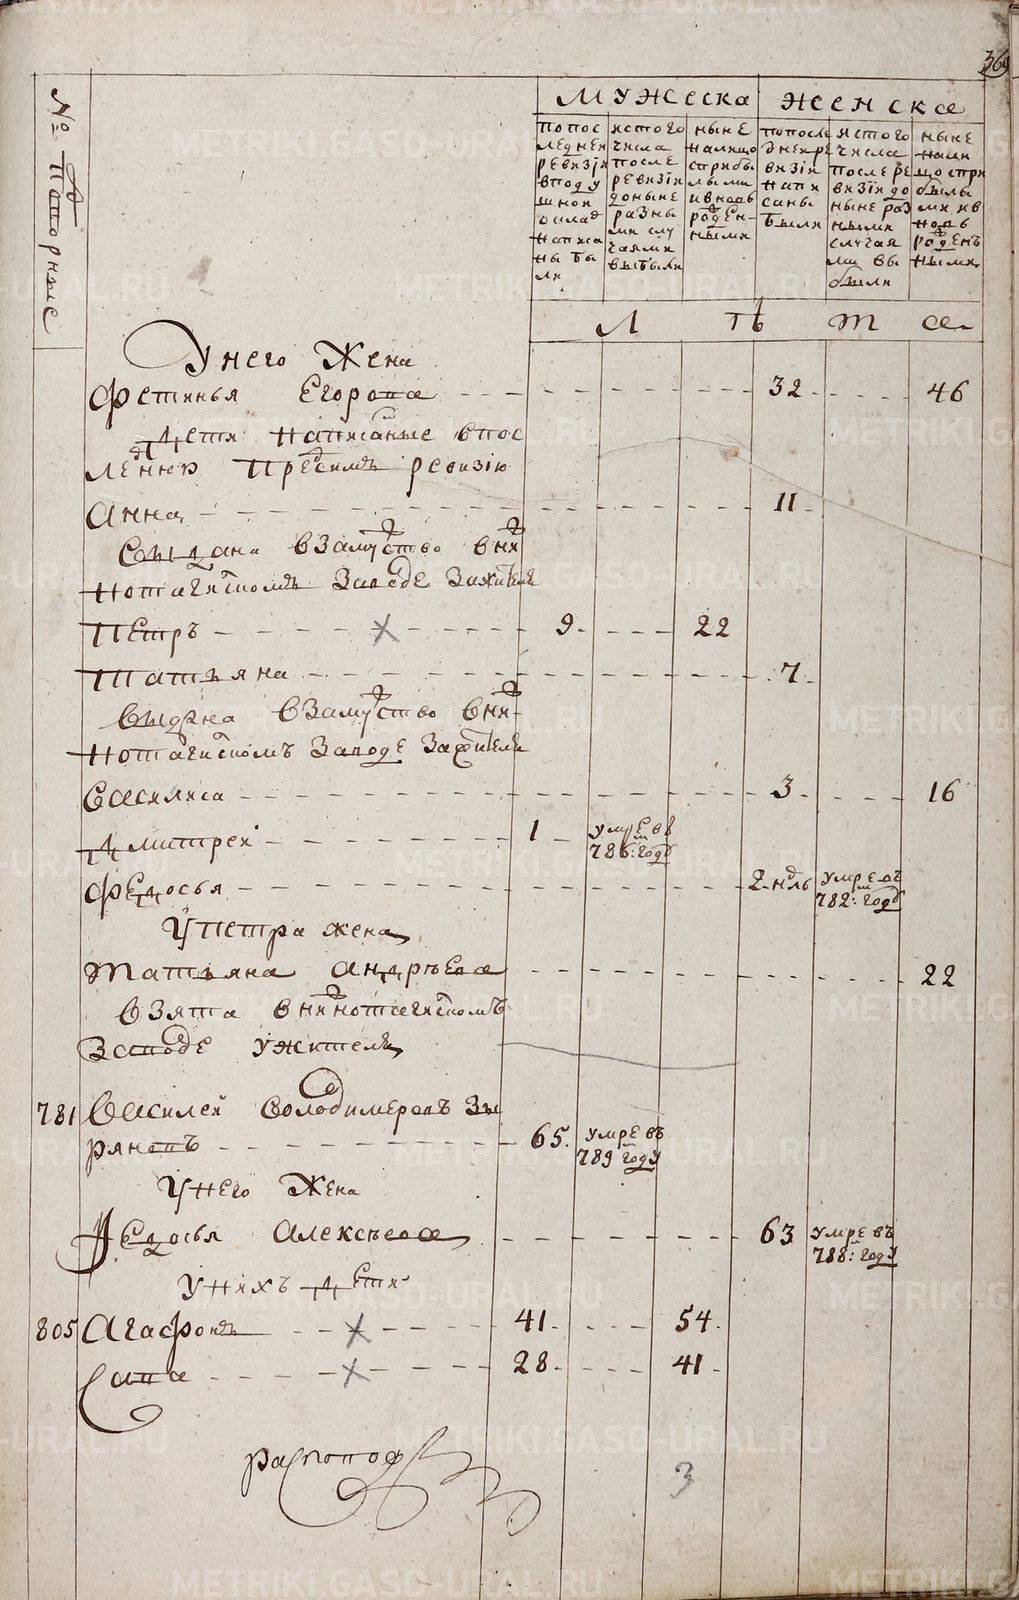 369
№ Подворные
МУЖЕСКА
ЖЕНСКА
по пос
леднеи
ревизіи
в поду
шнои
оклад
написа
ны бы
ли
ис того
числа
после
ревизіи
до ныне
разны
ми слу
чаями
выбыли
ныне
налицо
с прибы
лыми
и вновь
рожден
ными
по после
днеи ре
визіи
напи
саны
были
ис того
числа
после ре
визіи до
ныне раз
ными
случая
ми вы
были
ныне
нали
цо с при
былы
ми и в
новь
рожденъ
ными
Л Ѣ Т А
У него Жена
Фетинья Егорова 32 46
Дети написаные в пос
леднюю пред симъ ревизію
Анна 11
выдана в замужство в ни
жнотагилскомъ заводе за жителя
Петръ 9 22
Татьяна 7
выдана в замужство в ни
жнотагилскомъ заводе за жителя
Василиса 3 16
Дмитреи 1 умре въ
786: году
Федосья 2 ндль умре въ
782: году
У петра жена
Татьяна Андреева 22
взята в нижнотагилскомъ
заводе у жителя
781 Василеи Володимеровъ Зы
ряновъ 65. умре въ
789 году
У него Жена
Федосья Алексеева 63 умре въ
788: году
У нихъ дети
805 Агафонъ 41 54
Сава 28 41
распопов
3
METRIKI.GASO-URAL.RU